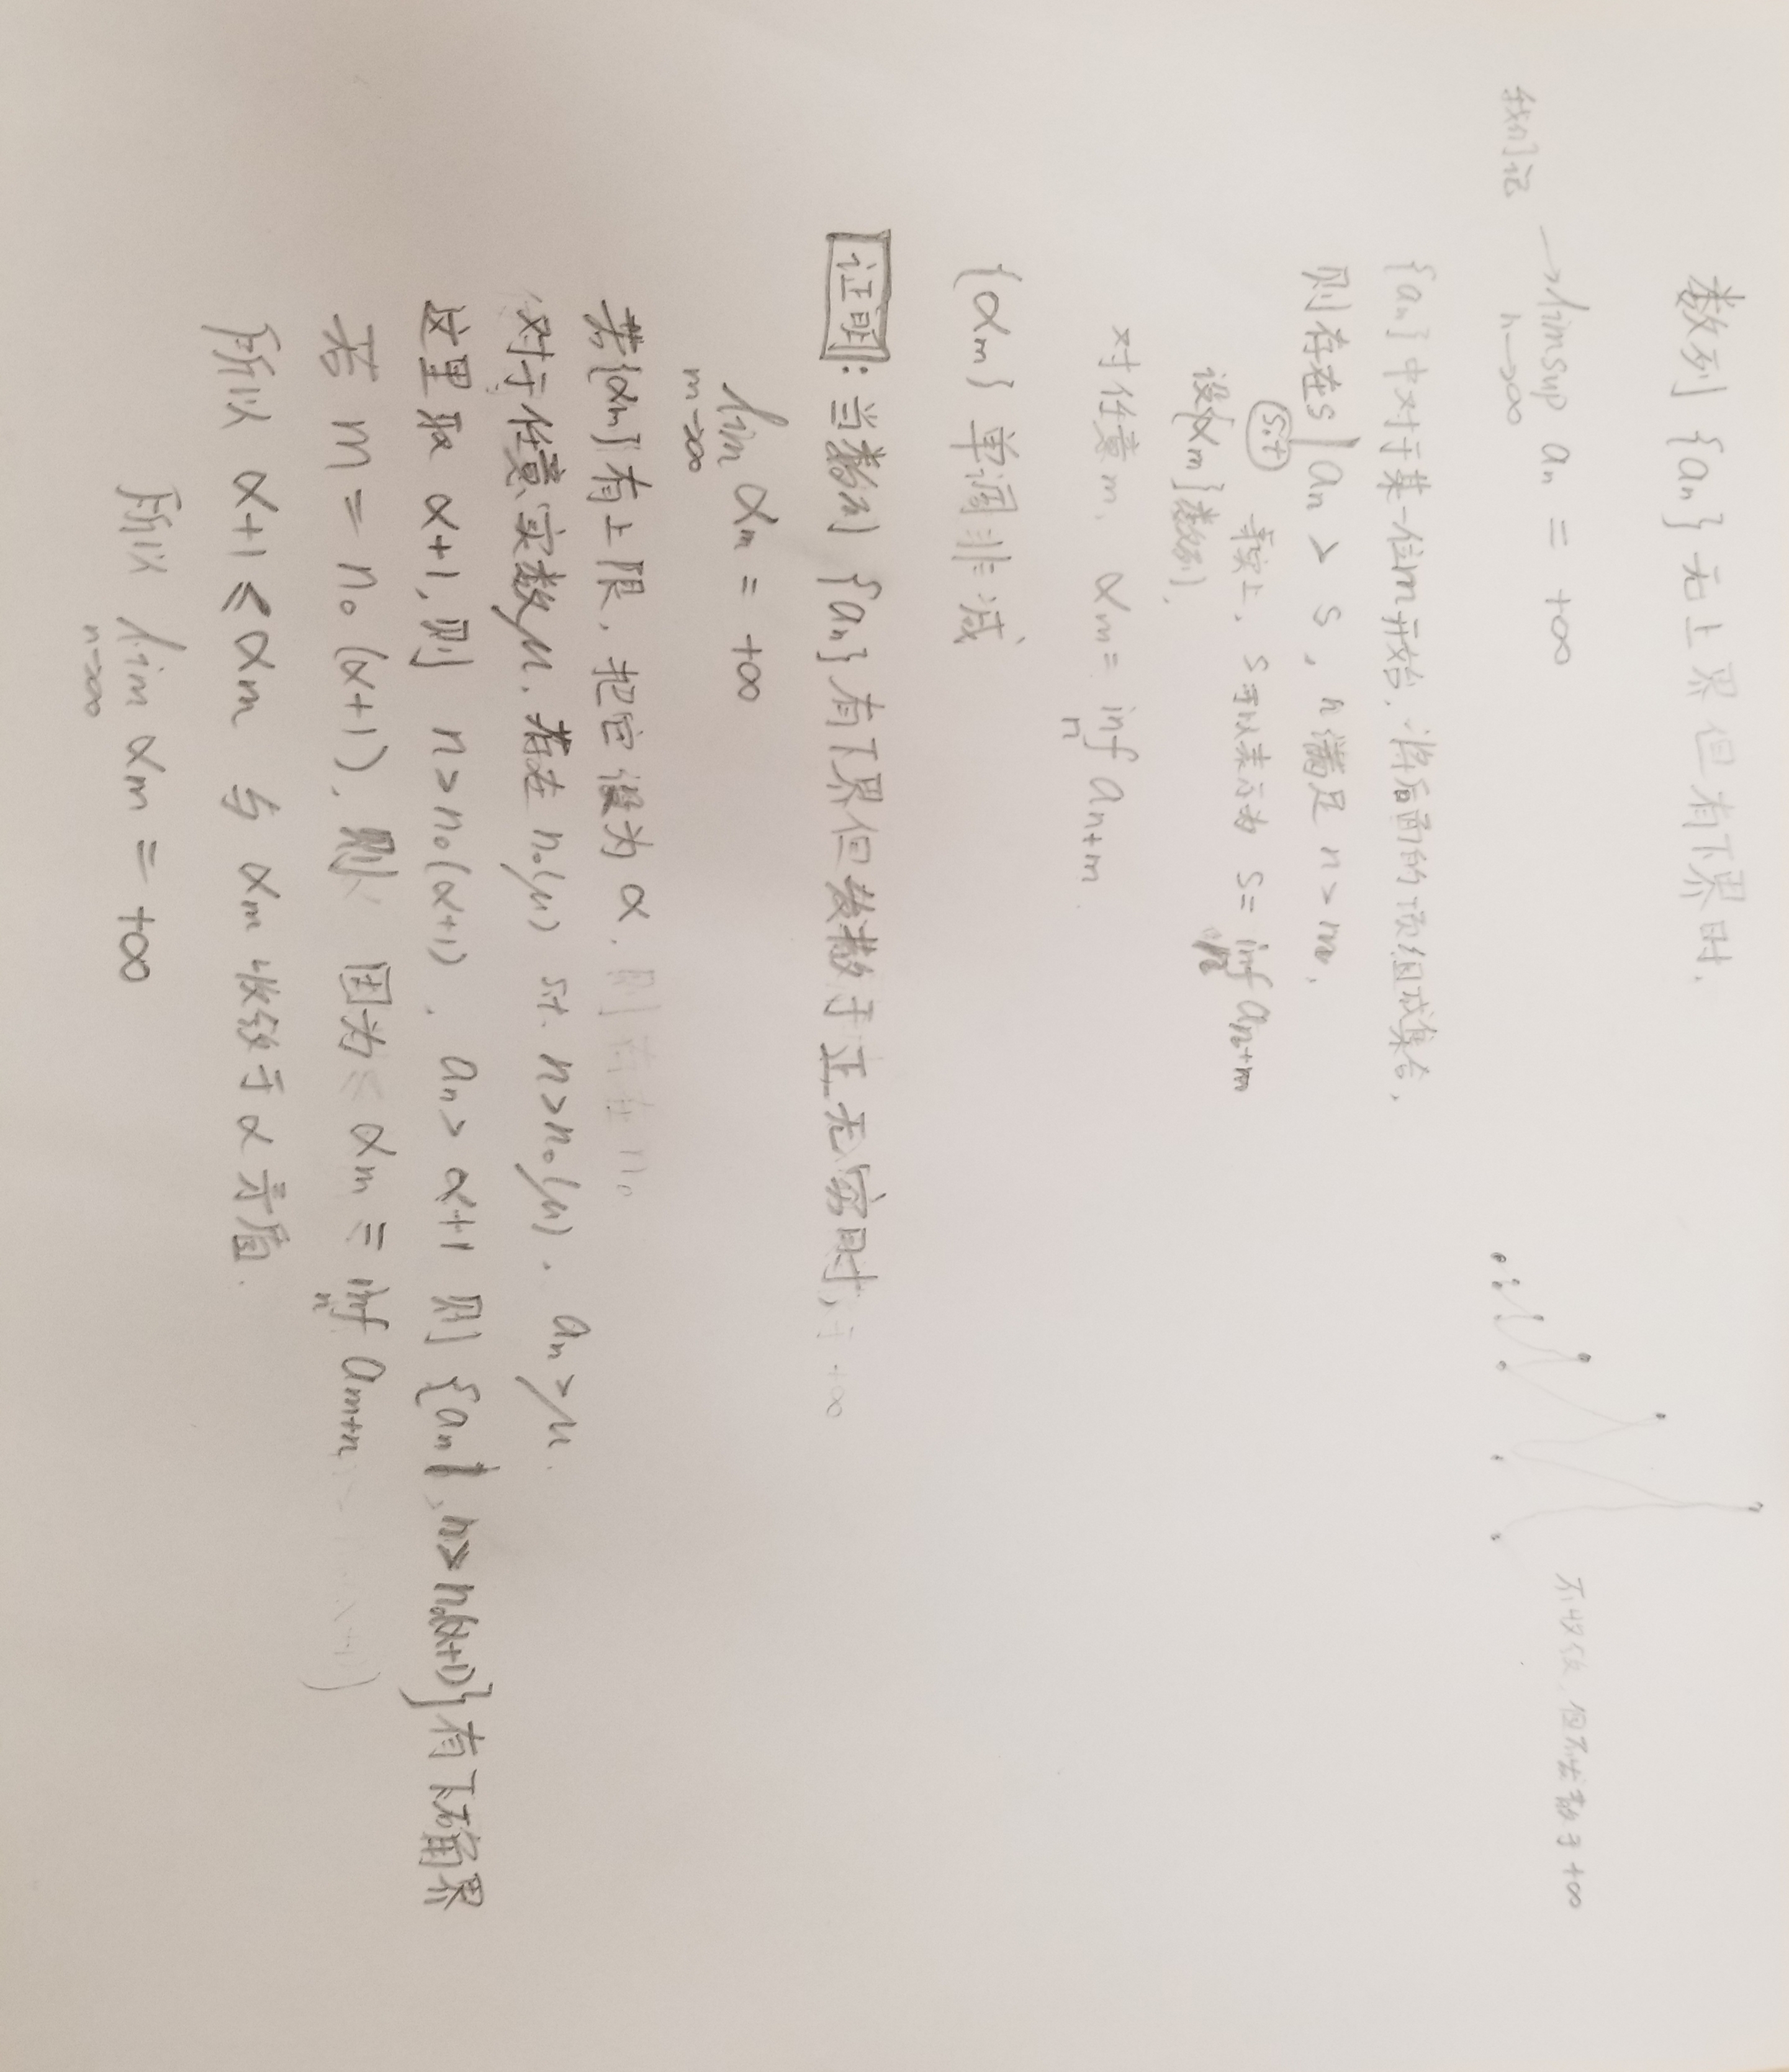 数列 {an} 无上界但有下界时.
我们记 → lim sup an = +∞
n→∞
{an} 中对于某一位m开始, 将后面的项组成集合,
则存在s | an > s , n 满足 n > m,
s.t 事实上, s 可以表示为 s = inf an+m
n
设{αm}数列,
对任意 m, αm = inf an+m
n
{αm} 单调非减
不收敛, 但不发散于 +∞
证明: 当数列 {an} 有下界但发散于正无穷时,
lim αm = +∞
m→∞
若{αm}有上限, 把它设为 α.
对于任意实数 μ. 存在 n₀(μ) s.t. n>n₀(μ). an > μ.
这里取 α+1, 则 n>n₀(α+1). an > α+1 则 {an | , n>n₀(α+1)} 有下确界
若 m = n₀ (α+1), 则 因为 αm = inf am+n
n
所以 α+1 ≤ αm 与 αm 收敛于 α 矛盾.
所以 lim αm = +∞
n→∞